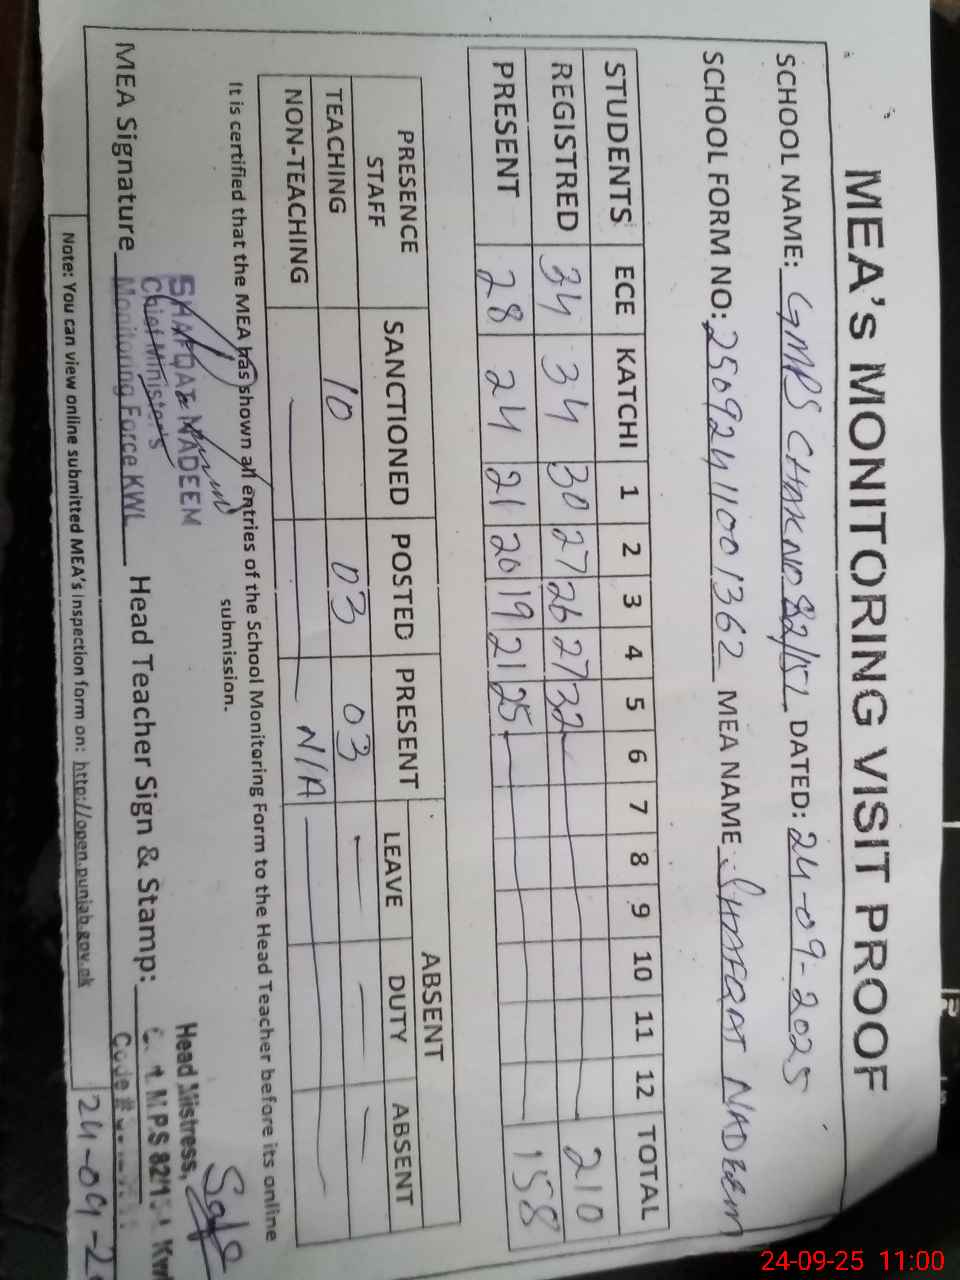 MEA's MONITORING VISIT PROOF
SCHOOL NAME: GMPS CHAK NO 82/15L DATED: 24-09-2025
SCHOOL FORM NO: 25092411001362 MEA NAME SHAFQAT NADEEM
STUDENTS ECE KATCHI 1 2 3 4 5 6 7 8 9 10 11 12 TOTAL
REGISTRED 34 34 30 27 26 27 32 210
PRESENT 28 24 21 20 19 21 25 158
PRESENCE STAFF SANCTIONED POSTED PRESENT ABSENT
LEAVE DUTY ABSENT
TEACHING 10 03 03 — — —
NON-TEACHING — N/A —
It is certified that the MEA has shown all entries of the School Monitoring Form to the Head Teacher before its online
submission.
SHAFQAT NADEEM
Chief Minister's
Monitoring Force KWL
MEA Signature Head Teacher Sign & Stamp:
Head Mistress,
MPS 82/15
Code #
Note: You can view online submitted MEA's inspection form on: http://open.punjab.gov.pk
24-09-2
24-09-25 11:00